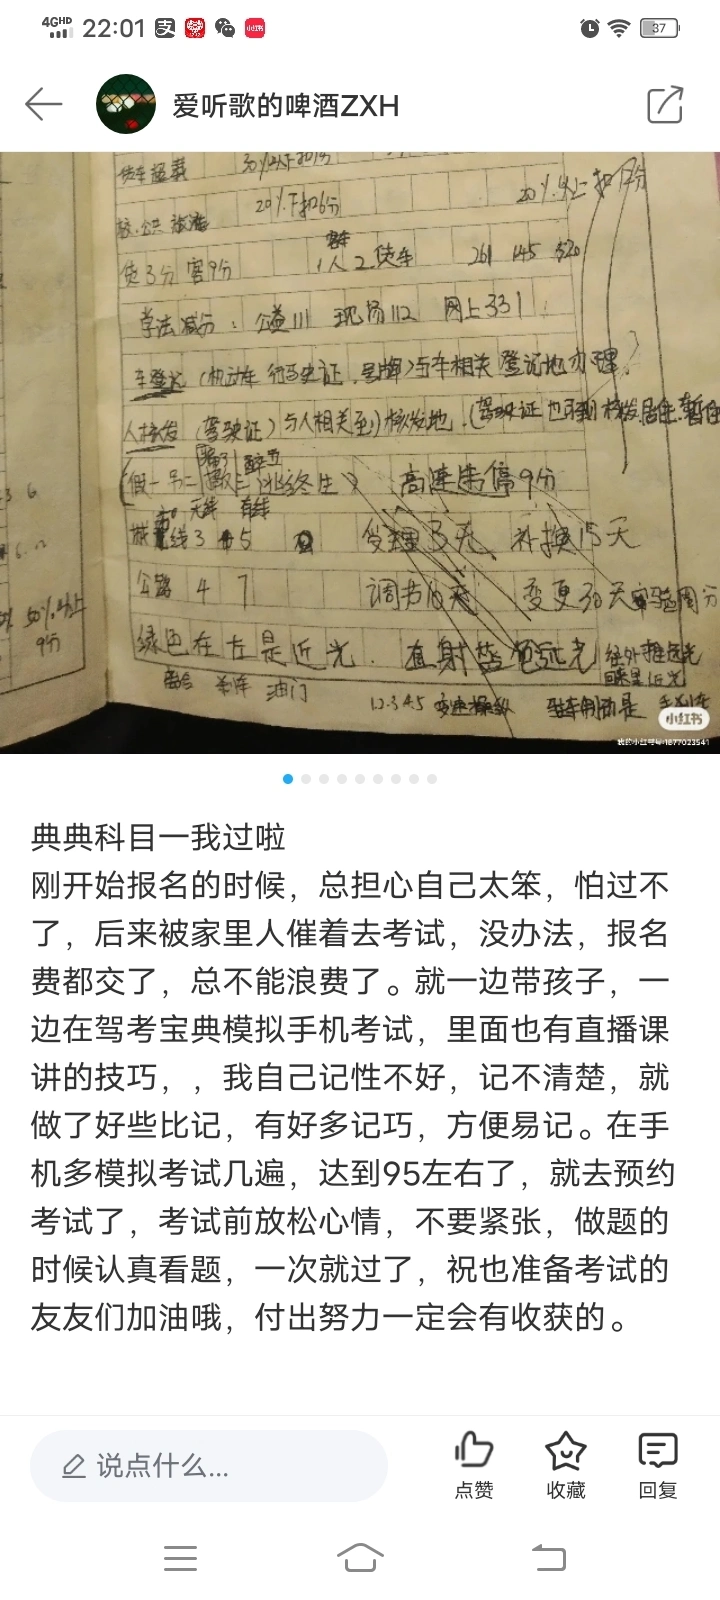 4GHD 22:01 支 小红书 37
爱听歌的啤酒ZXH
30%以下扣
20%下扣6分 20%以上扣
货3分 客9分 1人 2货车 261 145 520
学法减分：公益111 现场112 网上331
车登记（机动车 行驶证、号牌）与车相关 登记地办理
人核发（驾驶证）与人相关 核发地（驾驶证也可到核发居住暂住
醉五
（假一 另二 逃终生） 高速 停9分
无线 有线
线 3 5 受理3天 补换15天
公路 4 7 调节10天 变更30天
绿色在左是近光 直射 远光
50%以上
9分
离合 油门 1.2.3.4.5 变速操纵
小红书
我的小红书号:1877023541
典典科目一我过啦
刚开始报名的时候，总担心自己太笨，怕过不
了，后来被家里人催着去考试，没办法，报名
费都交了，总不能浪费了。就一边带孩子，一
边在驾考宝典模拟手机考试，里面也有直播课
讲的技巧，，我自己记性不好，记不清楚，就
做了好些比记，有好多记巧，方便易记。在手
机多模拟考试几遍，达到95左右了，就去预约
考试了，考试前放松心情，不要紧张，做题的
时候认真看题，一次就过了，祝也准备考试的
友友们加油哦，付出努力一定会有收获的。
说点什么...
点赞 收藏 回复